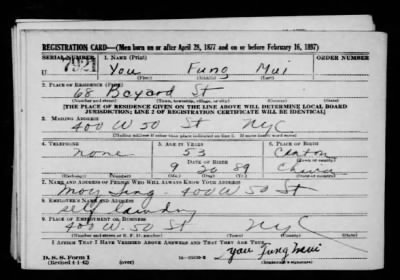 REGISTRATION CARD—(Men born on or after April 28, 1877 and on or before February 16, 1897)
SERIAL NUMBER 1. NAME (Print) ORDER NUMBER
U 7921 You Fung Mui
(First) (Middle) (Last)
2. PLACE OF RESIDENCE (Print)
68 Bayard St
(Number and street) (Town, township, village, or city) (County) (State)
[THE PLACE OF RESIDENCE GIVEN ON THE LINE ABOVE WILL DETERMINE LOCAL BOARD
JURISDICTION; LINE 2 OF REGISTRATION CERTIFICATE WILL BE IDENTICAL]
3. MAILING ADDRESS
400 W. 50 St NYC
[Mailing address if other than place indicated on line 2. If same insert word same]
4. TELEPHONE 5. AGE IN YEARS 6. PLACE OF BIRTH
none 53 Canton
DATE OF BIRTH (Town or county)
9 20 89 China
(Exchange) (Number) (Mo.) (Day) (Yr.) (State or country)
7. NAME AND ADDRESS OF PERSON WHO WILL ALWAYS KNOW YOUR ADDRESS
Moy 400 W 50 St
8. EMPLOYER'S NAME AND ADDRESS
self laundry
9. PLACE OF EMPLOYMENT OR BUSINESS
400 W. 50 St NYC
(Number and street or R. F. D. number) (Town) (County) (State)
I AFFIRM THAT I HAVE VERIFIED ABOVE ANSWERS AND THAT THEY ARE TRUE.
D. S. S. Form 1 you Fung mui
(Revised 4-1-42) (over)